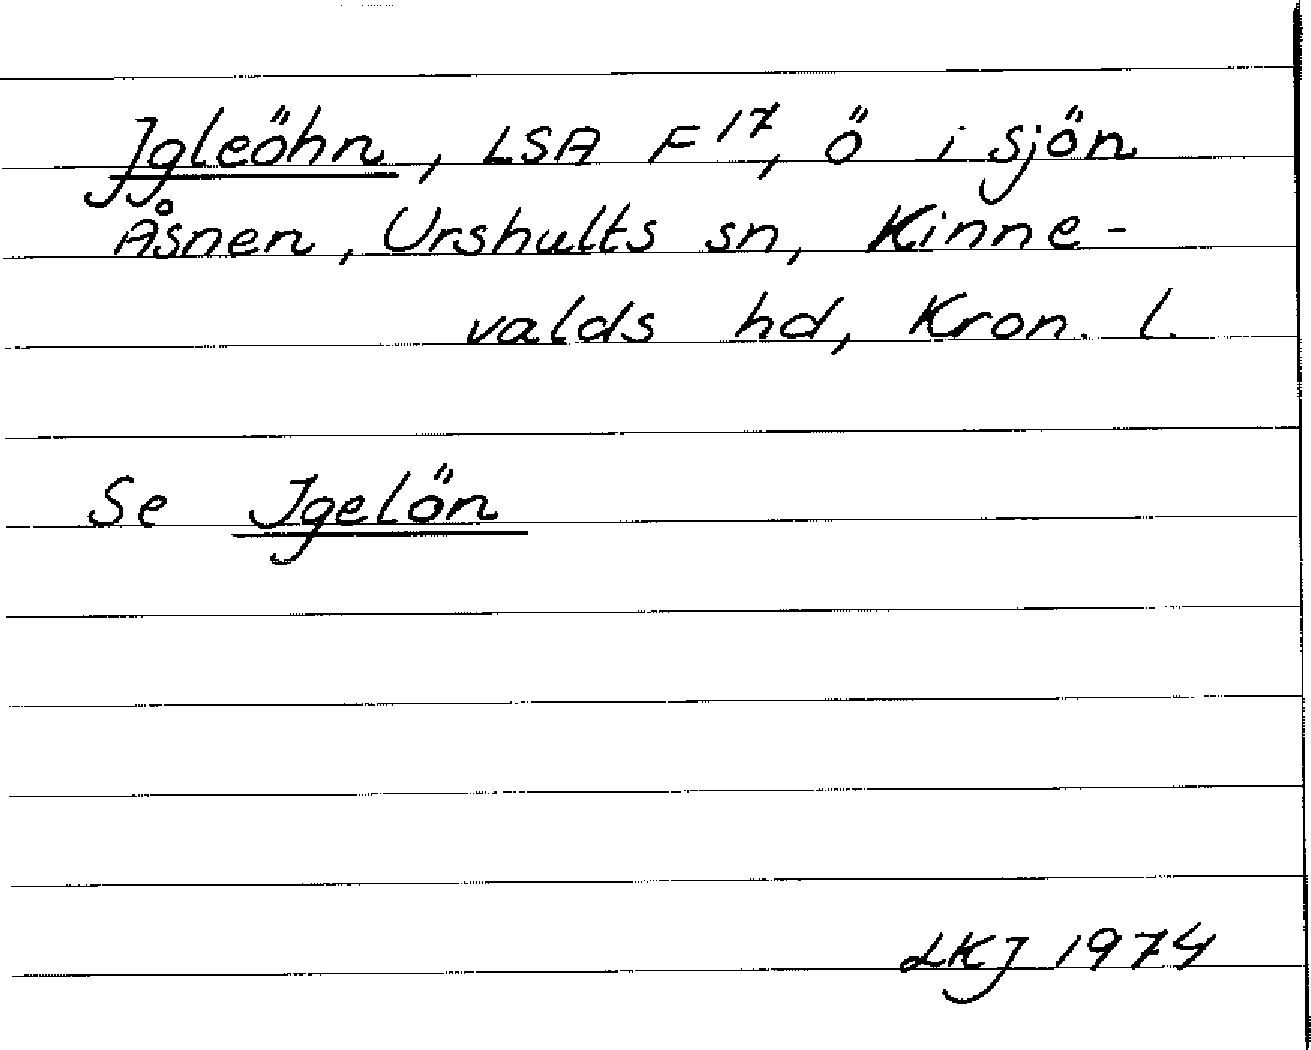 Jgleöhn, LSA F 17, ö i sjön
Åsnen, Urshults sn, Kinne-
valds hd, Kron. l.
Se Jgelön
LKJ 1974